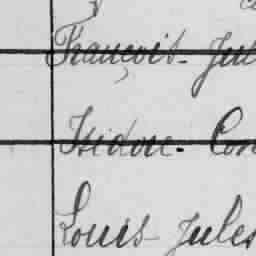 François- Jul
Isidore- Con
Louis Jules